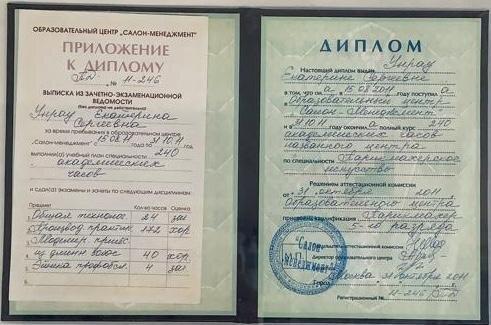 ОБРАЗОВАТЕЛЬНЫЙ ЦЕНТР „САЛОН-МЕНЕДЖМЕНТ"
ПРИЛОЖЕНИЕ
К ДИПЛОМУ
№ 11-246
ВЫПИСКА ИЗ ЗАЧЕТНО-ЭКЗАМЕНАЦИОННОЙ
ВЕДОМОСТИ
(без диплома не действительна)
Екатерина
Сергеевна
за время пребывания в образовательном центре
„Салон-менеджмент" с 15.08.11 года по 31.10.11
выполнил(а) учебный план специальности 240
академических
часов
и сдал(а) экзамены и зачеты по следующим дисциплинам
Предмет Кол-во часов Оценка
1. Общая технолог. 24 зач
2. Производ практик 172 хор.
3. Моделир причес
4. из длинн волос 40 хор.
5. Этика професс. 4 зач.
ДИПЛОМ
Настоящий диплом выдан
Екатерине Сергеевне
в том, что он а 15.08.2011 поступил а
в Образовательный центр
„Салон-Менеджмент"
31.10.11 окончил а полный курс 240
академических часов
названного центра
по специальности Парикмахерское
искусство
Решением аттестационной комиссии
от "31" октября 2011
Образовательного центра
присвоена квалификация Парикмахер
5-го разряда
Председатель аттестационной комиссии
Директор образовательного центра
"САЛОН-
МЕНЕДЖМЕНТ"
Город Москва 31 октября 2011
Регистрационный № 11-246